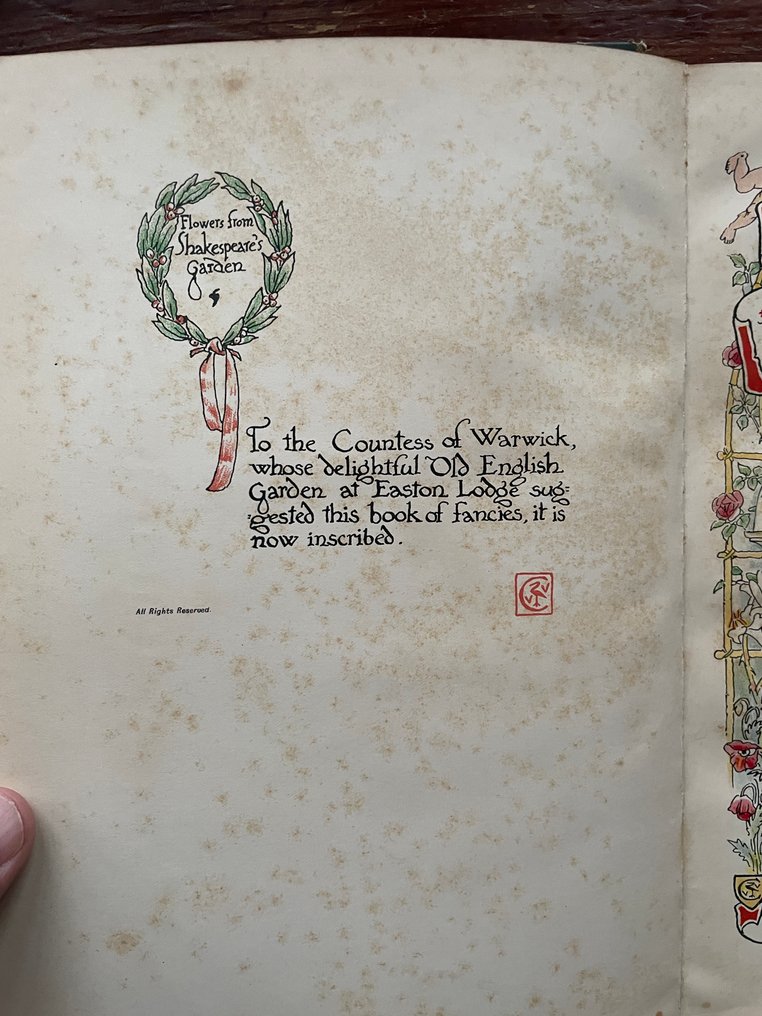 Flowers from
Shakespeare's
Garden
To the Countess of Warwick,
whose delightful Old English
Garden at Easton Lodge sug=
=gested this book of fancies, it is
now inscribed.
All Rights Reserved.